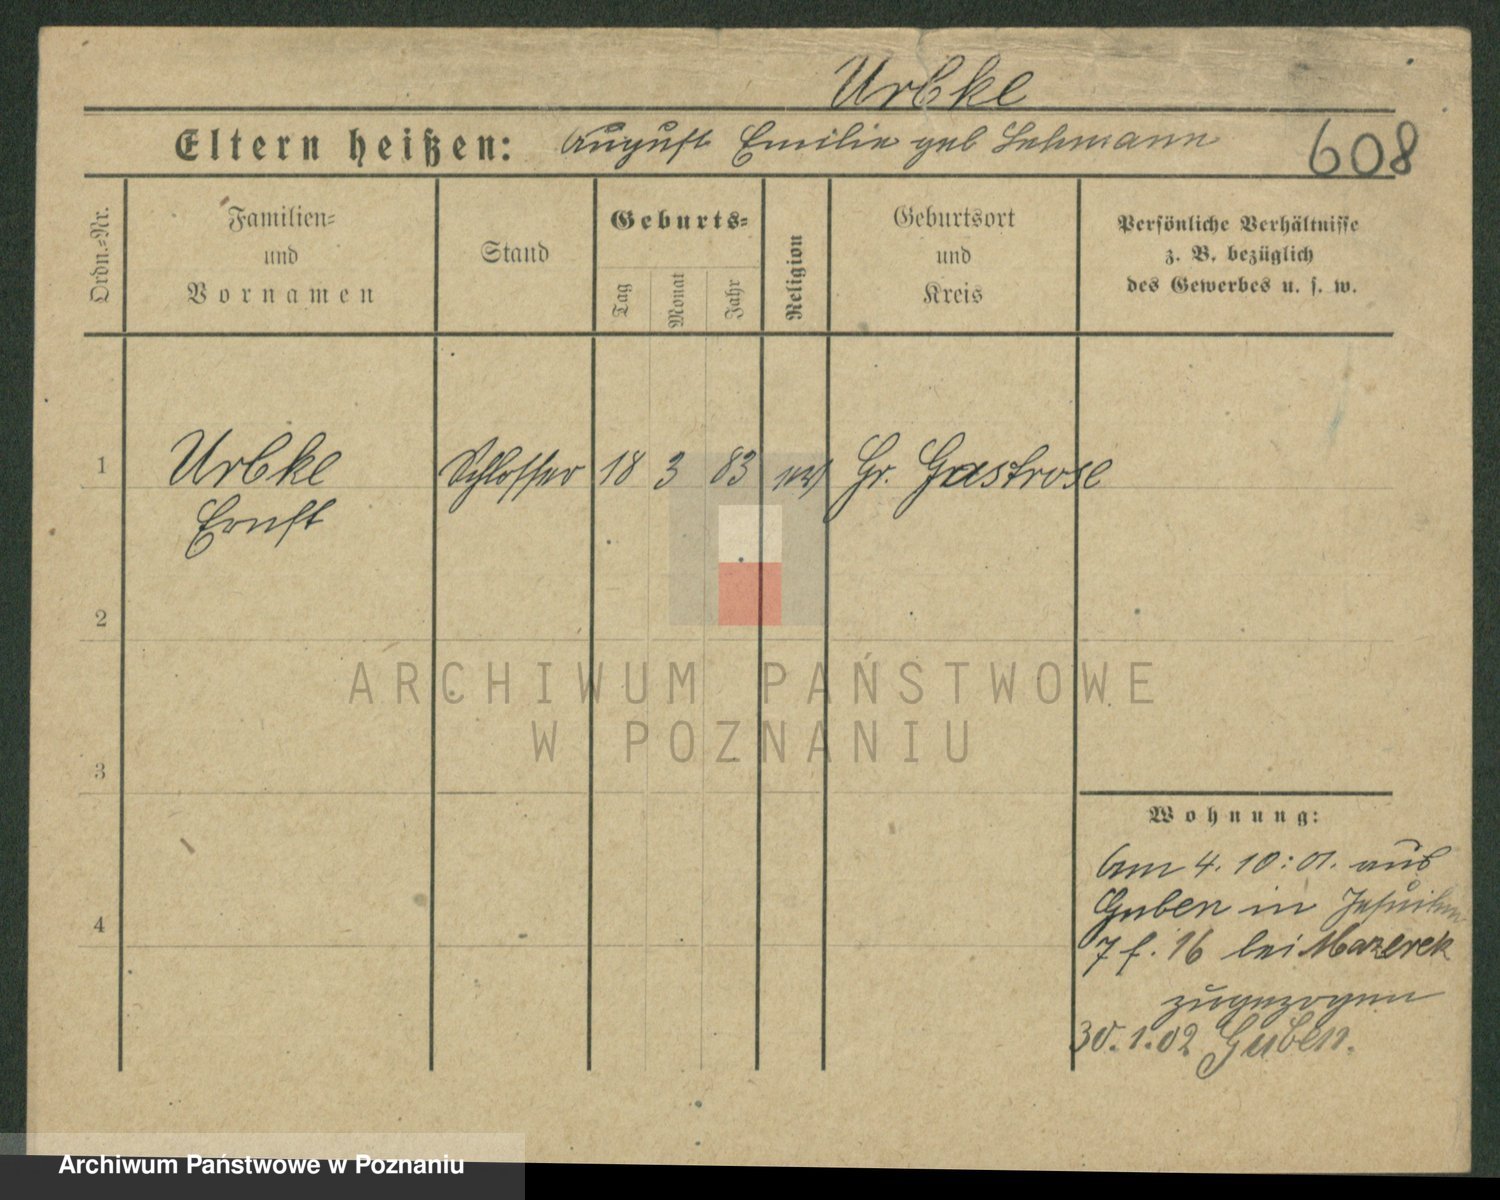 Urbke
Eltern heißen: August Emilie geb Lehmann
608
Ordn.=Nr.
Familien=
und
Vornamen
Stand
Geburts=
Tag
Monat
Jahr
Religion
Geburtsort
und
Kreis
Persönliche Verhältnisse
z. B. bezüglich
des Gewerbes u. s. w.
1 Urbke Schlosser 18 3 83 Gr. Gastrose
Ernst
2
3
4
ARCHIWUM PAŃSTWOWE
W POZNANIU
Wohnung:
am 4. 10. 01. aus
Guben in Jesuiten
7 f. 16 bei Mazerek
zugezogen
30.1.02 Guben.
Archiwum Państwowe w Poznaniu